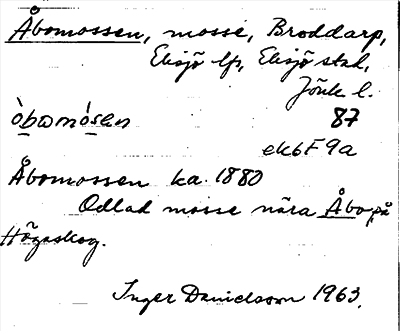 Åbomossen, mosse, Broddarp,
Eksjö lfs, Eksjö stad,
Jönk l.
òbomósen 87
ek6F9a
Åbomossen ka. 1880
Odlad mosse nära Åbo på
Högaskog.
Inger Danielsson 1963.